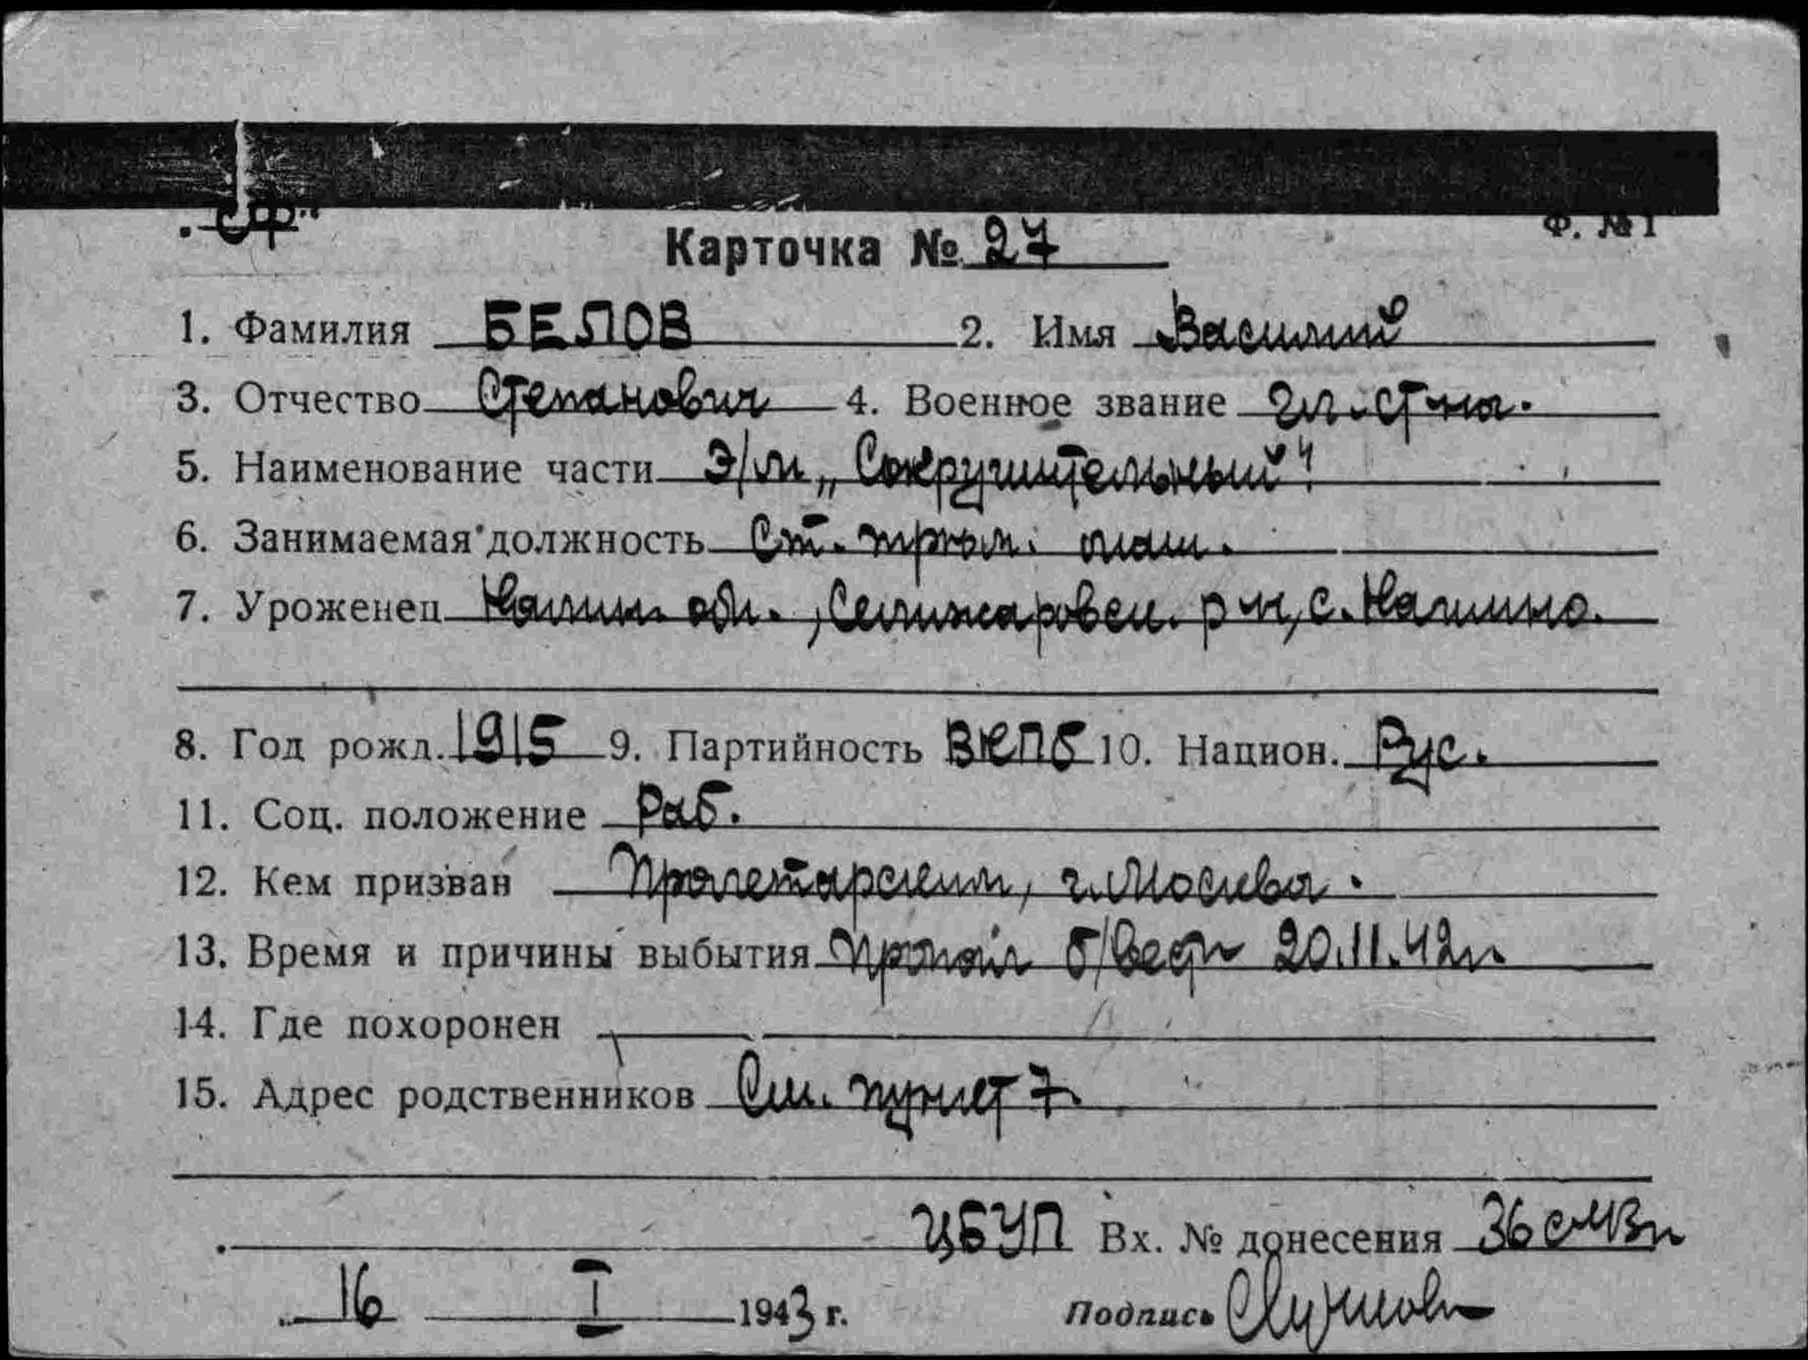 "СФ"
Ф. №1
Карточка № 27
1. Фамилия БЕЛОВ 2. Имя Василий
3. Отчество Степанович 4. Военное звание гл. ст-на.
5. Наименование части Э/м „Сокрушительный"
6. Занимаемая должность Ст. трюм. маш.
7. Уроженец Калин. обл., Селижаровск. р-н, с. Калинино.
8. Год рожд. 1915 9. Партийность ВКПб 10. Национ. Рус.
11. Соц. положение Раб.
12. Кем призван Пролетарским, г. Москва.
13. Время и причины выбытия Пропал б/вести 20.11.42г.
14. Где похоронен
15. Адрес родственников См. пункт 7
ЦБУП Вх. № донесения 36
16 I 1943 г. Подпись